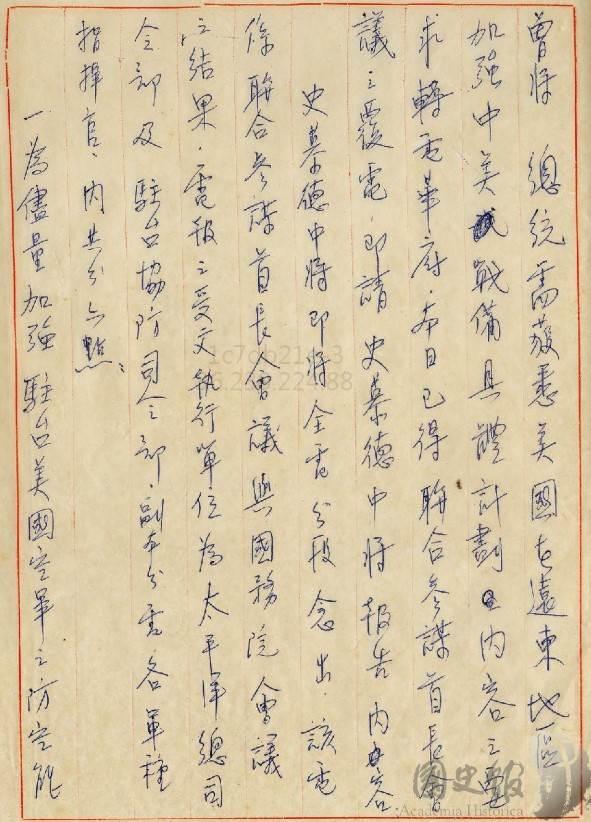 曾將　總統需獲悉美國在遠東地區
加強中美戰備具體計劃內容之要
求轉電華府，本日已得聯合參謀首長會
議之覆電，即請史慕德中將報告內容
史慕德中將即將全電分段念出，該電
係聯合參謀首長會議與國務院會議
之結果，電報之受文執行單位為太平洋總司
令部及駐台協防司令部，副本分電各軍種
指揮官，內共分六點：
一為儘量加強駐台美國空軍之防空能
國史館
Academia Historica